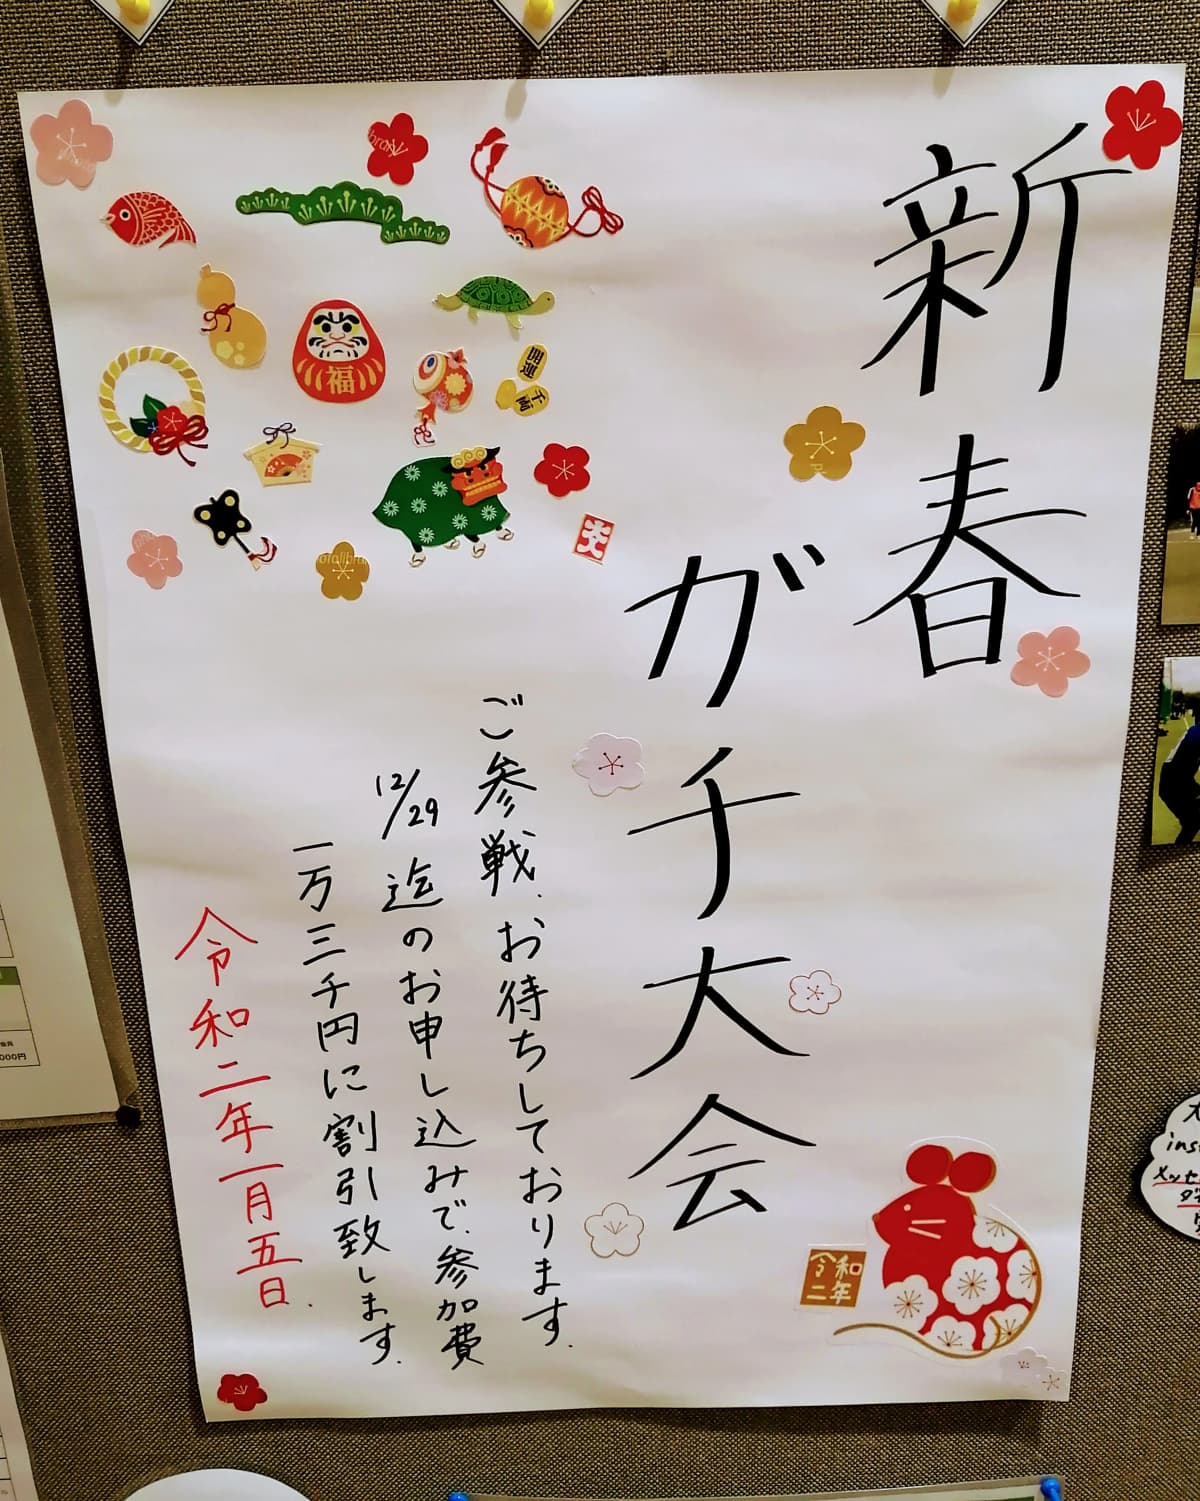 新春
ガチ大会
ご参戦、お待ちしております.
12/29 迄のお申し込みで、参加費
一万三千円に割引致します.
令和二年一月五日.
福
開運
千両
令和
二年
000円